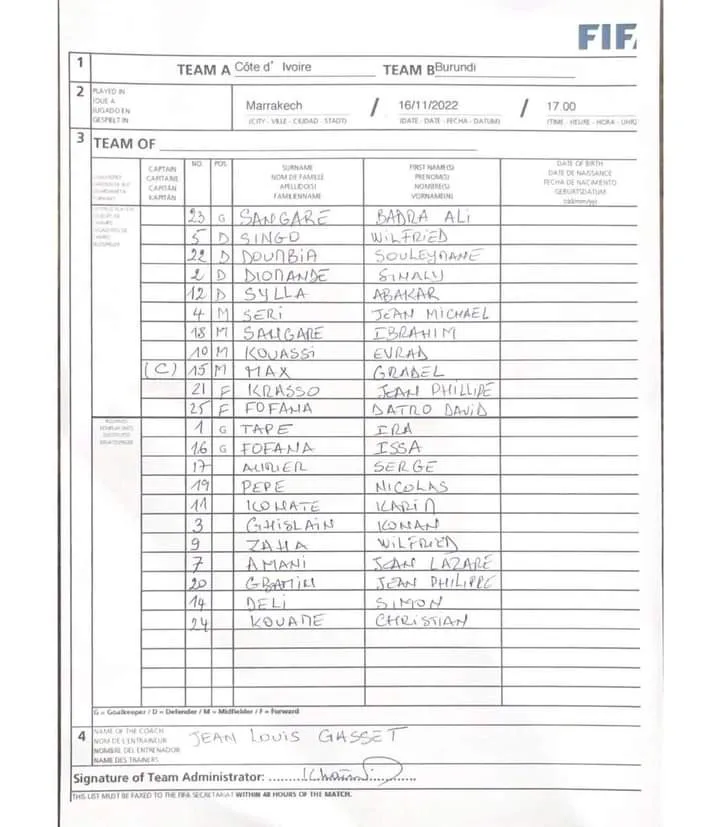 FIFA
1 TEAM A Côte d' Ivoire TEAM B Burundi
2 PLAYED IN
JOUE A
JUGADO EN
GESPIELT IN
Marrakech / 16/11/2022 / 17.00
(CITY - VILLE - CIUDAD - STADT) (DATE - DATE - FECHA - DATUM) (TIME - HEURE - HORA - UHR
3 TEAM OF
CAPTAIN
CAPITAINE
CAPITÁN
KAPITÄN
NO. POS.
SURNAME
NOM DE FAMILLE
APELLIDO(S)
FAMILIENNAME
FIRST NAME(S)
PRENOM(S)
NOMBRE(S)
VORNAME(N)
DATE OF BIRTH
DATE DE NAISSANCE
FECHA DE NACIMIENTO
GEBURTSDATUM
(dd/mm/yy)
23 G SANGARE BADRA ALI
5 D SINGO WILFRIED
22 D DOUMBIA SOULEYMANE
2 D DIOMANDE SINALY
12 D SYLLA ABAKAR
4 M SERI JEAN MICHAEL
18 M SANGARE IBRAHIM
10 M KOUASSI EVRAD
(C) 15 M MAX GRADEL
21 F KRASSO JEAN PHILLIPE
25 F FOFANA DATRO DAVID
1 G TAPE IRA
16 G FOFANA ISSA
17 AURIER SERGE
19 PEPE NICOLAS
11 KONATE KARIM
3 GHISLAIN KONAN
9 ZAHA WILFRIED
7 AMANI JEAN LAZARE
20 GBAMIN JEAN PHILIPPE
14 DELI SIMON
24 KOUAME CHRISTIAN
G = Goalkeeper / D = Defender / M = Midfielder / F = Forward
4 NAME OF THE COACH
NOM DE L'ENTRAINEUR
NOMBRE DEL ENTRENADOR
NAME DES TRAINERS
JEAN LOUIS GASSET
Signature of Team Administrator:
THIS LIST MUST BE FAXED TO THE FIFA SECRETARIAT WITHIN 48 HOURS OF THE MATCH.